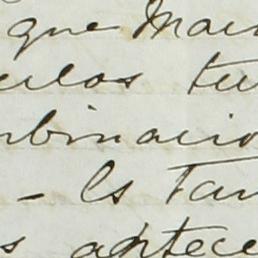 que Mai
culos tu
mbinacio
- Es Tan
s antece